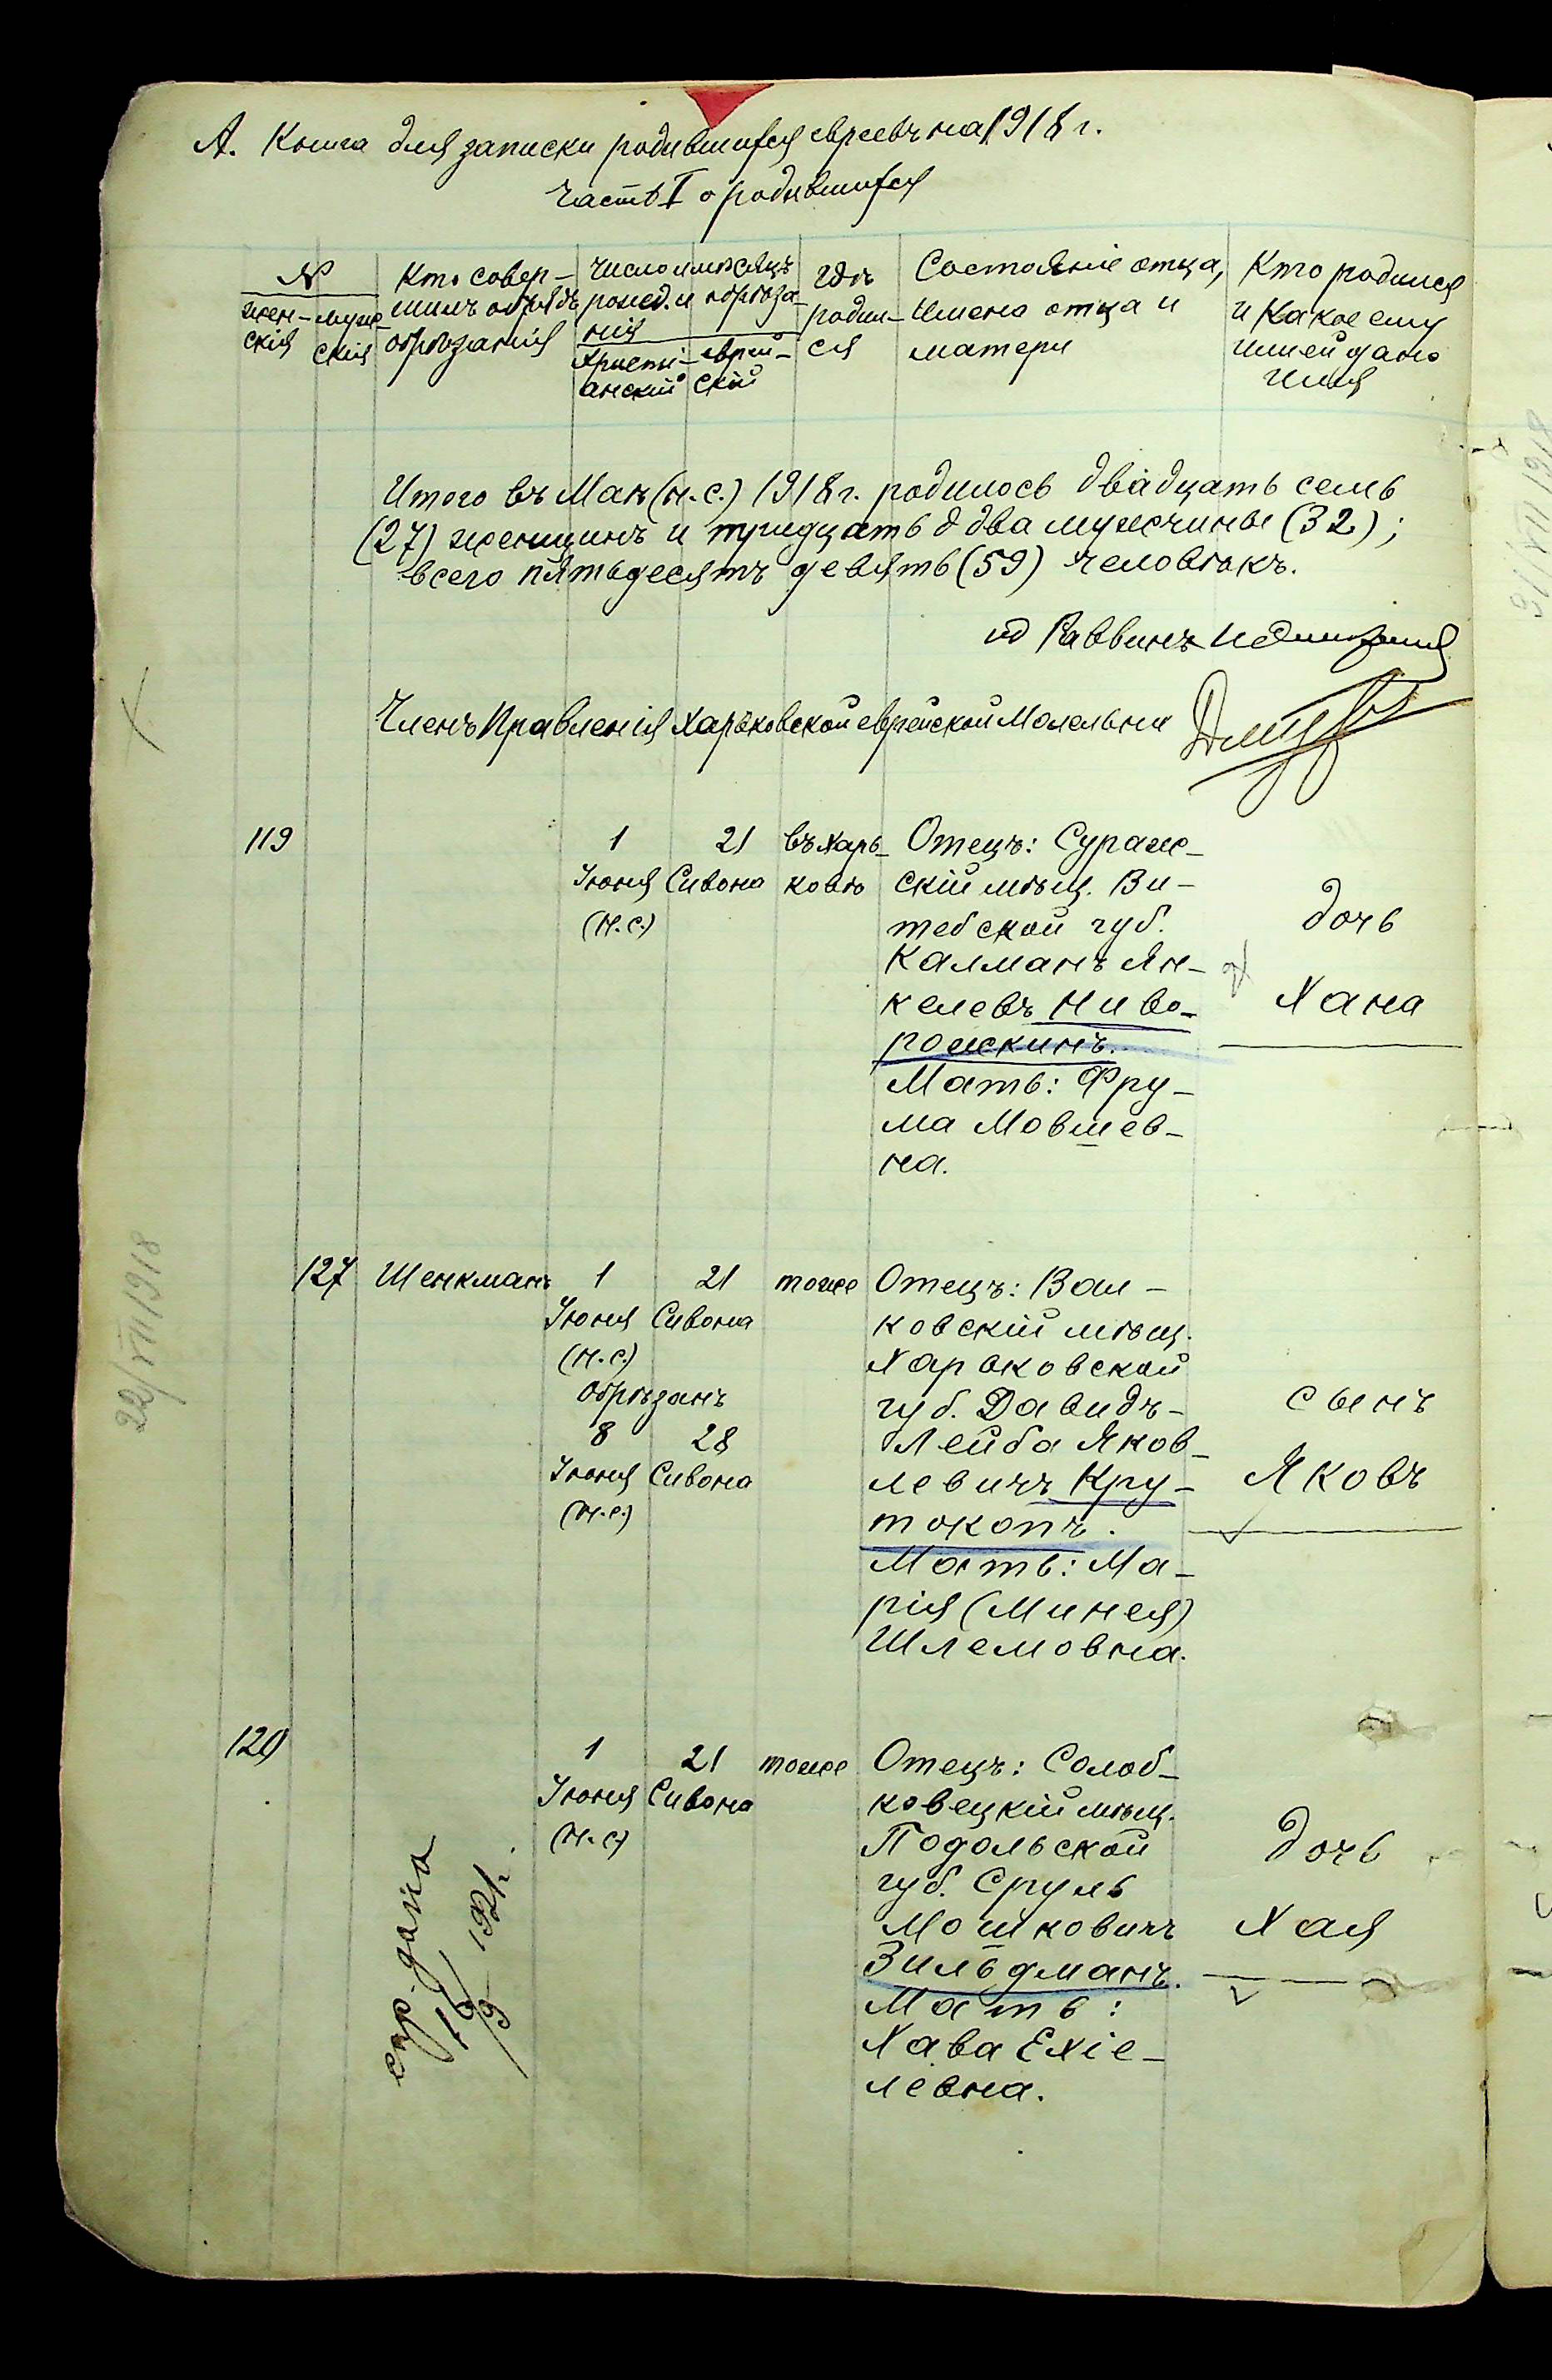 А. Книга для записки родившихся евреевъ на 1918 г.
Часть I о родившихся
№
жен-
скія
муже-
скія
Кто совер-
шилъ обрядъ
обрѣзанія
Число и мѣсяцъ
рожд. и обрѣза-
нія
Христі-
анскій
еврей-
скій
Гдѣ
родил-
ся
Состояніе отца,
имена отца и
матери
Кто родился
и какое ему
или ей дано
имя
Итого въ Маѣ (н.с.) 1918 г. родилось двадцать семь
(27) женщинъ и тридцать два мужчины (32);
всего пятьдесятъ девять (59) человѣкъ.
ид Раввинъ
Членъ Правленія Харьковской еврейской Молельни
119
1
Іюня
(н.с.)
21
Сивона
въ Харь-
ковѣ
Отецъ: Сураж-
скій мѣщ. Ви-
тебской губ.
Калманъ Ян-
келевъ Ниво-
рожкинъ.
Мать: Фру-
ма Мовшев-
на.
дочь
Хана
127
Шенкманъ
1
Іюня
(н.с.)
21
Сивона
обрѣзанъ
8
Іюня
(н.с.)
28
Сивона
тоже
Отецъ: Вал-
ковскій мѣщ.
Харьковской
губ. Давидъ-
Лейба Яков-
левичъ Кру-
токопъ.
Мать: Ма-
рія (Минея)
Шлемовна.
сынъ
Яковъ
22/VII 1918
120
1
Іюня
(н.с)
21
Сивона
тоже
Отецъ: Солоб-
ковецкій мѣщ.
Подольской
губ. Сруль
Мошковичъ
Зильдманъ.
Мать:
Хава Ехіе-
левна.
дочь
Хая
31/VII 1918